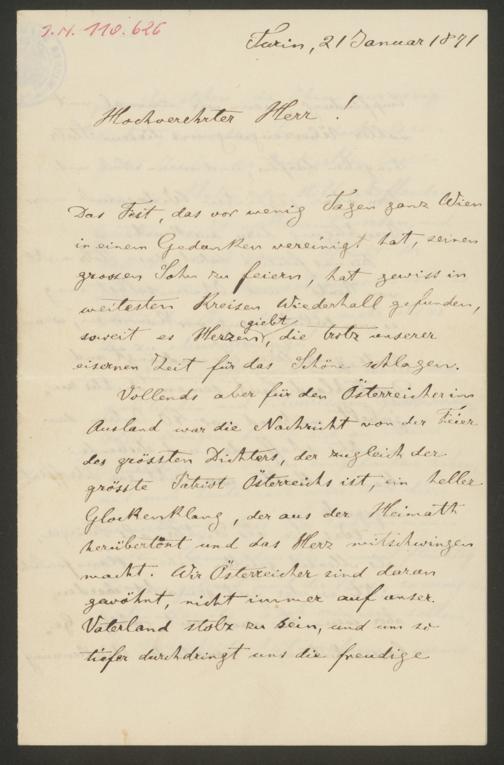 J.N. 110.626
Turin, 21 Januar 1871
Hochverehrter Herr !
Das Fest, das vor wenig Tagen ganz Wien
in einem Gedanken vereinigt hat, seinen
grossen Sohn zu feiern, hat gewiss in
weitesten Kreisen Wiederhall gefunden,
soweit es Herzen giebt, die trotz unserer
eisernen Zeit für das Schöne schlagen.
Vollends aber für den Österreicher im
Ausland war die Nachricht von der Feier
des grössten Dichters, der zugleich der
grösste Patriot Österreichs ist, ein heller
Glockenklang, der aus der Heimath
herübertönt und das Herz mitschwingen
macht. Wir Österreicher sind daran
gewöhnt, nicht immer auf unser
Vaterland stolz zu sein, und um so
tiefer durchdringt uns die freudige